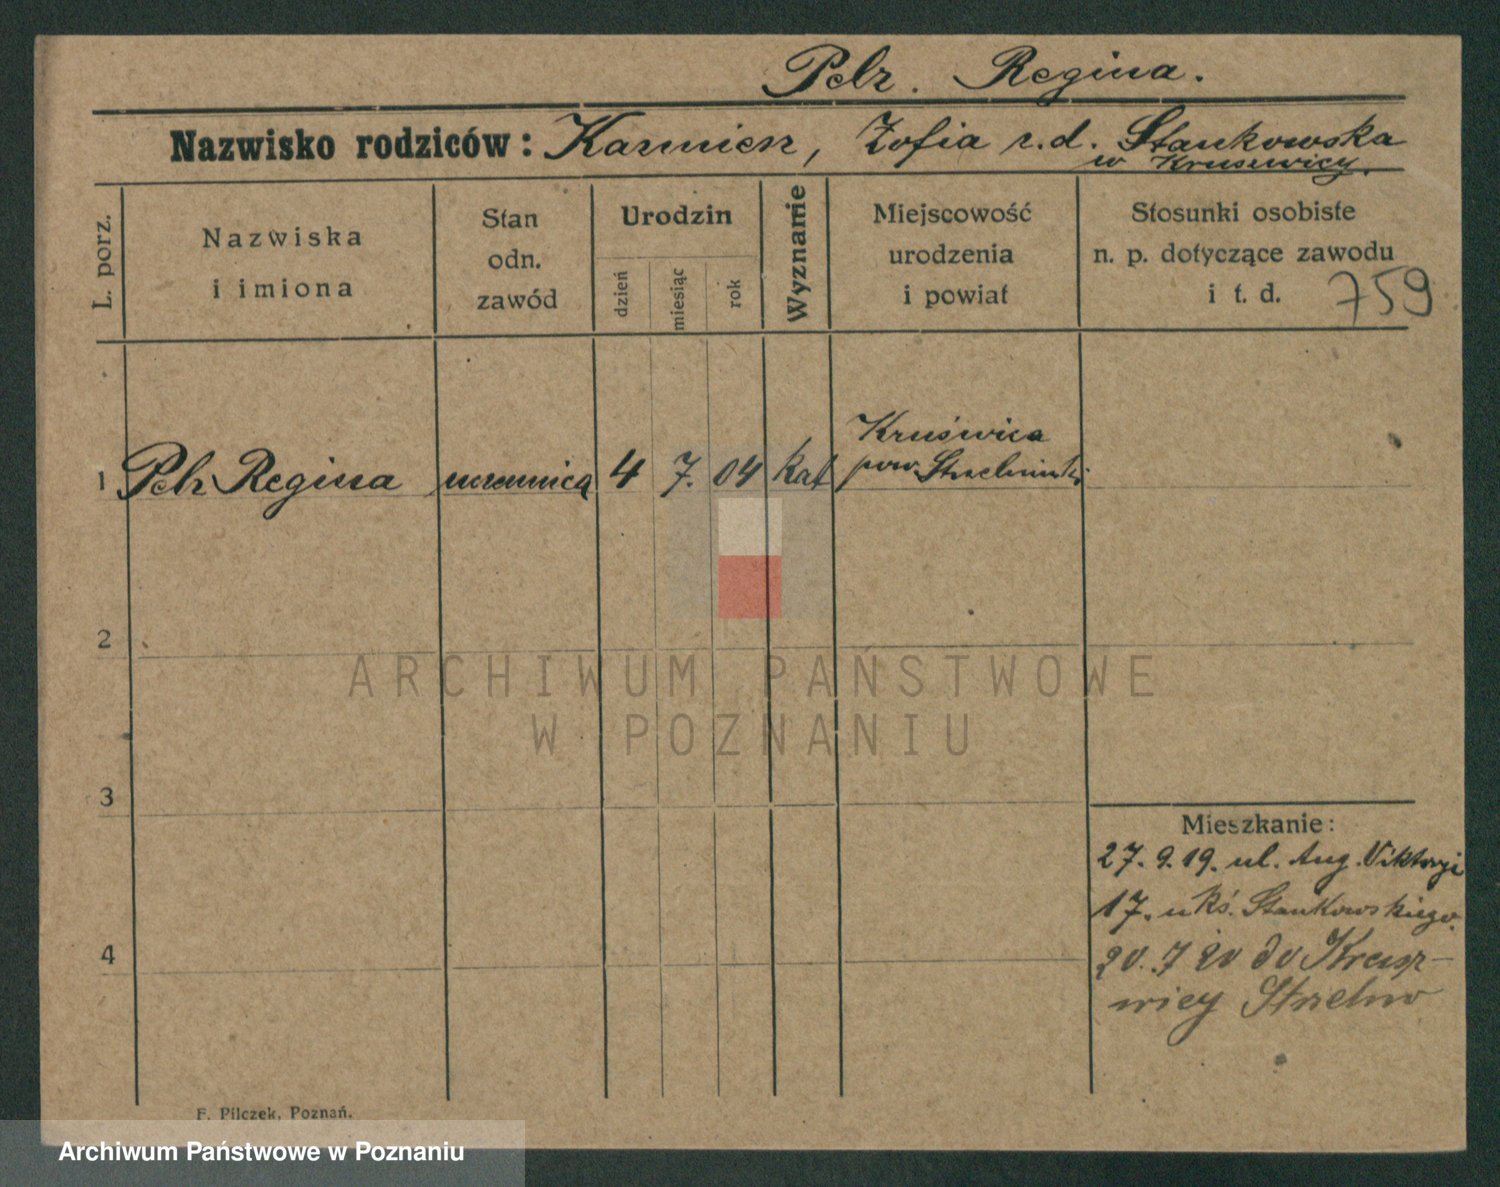 Pelz. Regina.
Nazwisko rodziców: Kazmierz, Zofia z.d. Stankowska
w Kruszwicy.
L. porz.
Nazwiska
i imiona
Stan
odn.
zawód
Urodzin
dzień
miesiąc
rok
Wyznanie
Miejscowość
urodzenia
i powiat
Stosunki osobiste
n. p. dotyczące zawodu
i t. d.
759
1 Pelz Regina uczennica 4 7. 04 kat
Kruświca
pow. Strzelniński
2
3
4
Mieszkanie:
27. 9. 19. ul. Aug. Viktoryi
17. u ks. Stankowskiego.
20. 7 20 do Krusz-
wicy Strzelno
F. Pilczek, Poznań.
ARCHIWUM PAŃSTWOWE
W POZNANIU
Archiwum Państwowe w Poznaniu